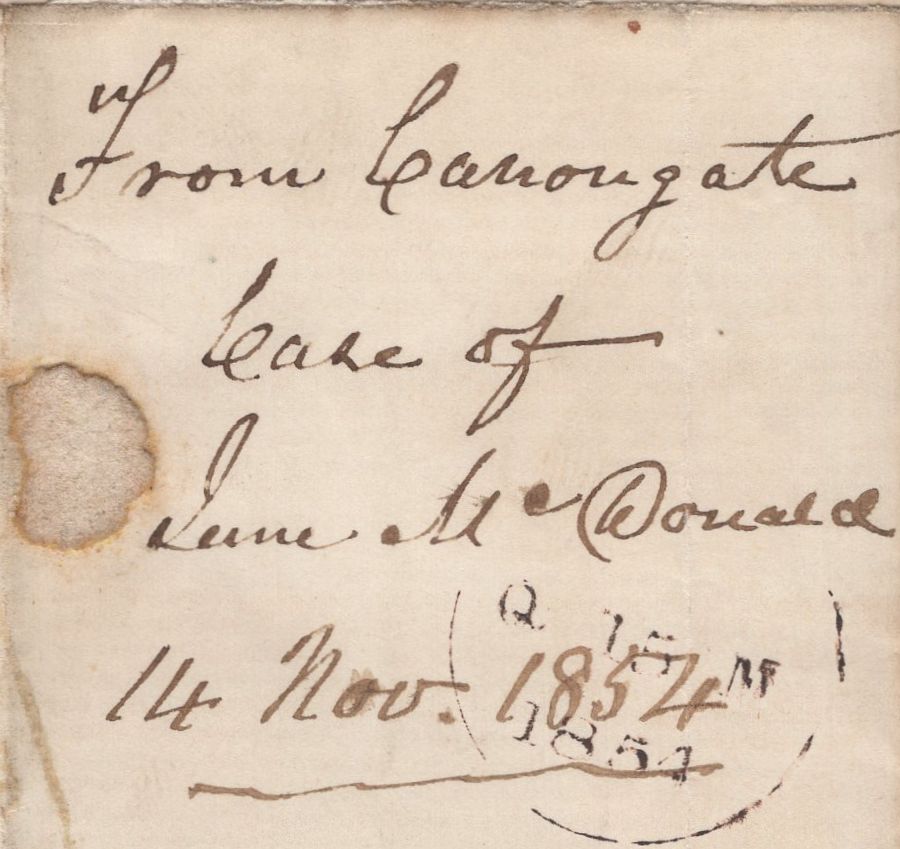 From Canongate
Case of
Jane McDonald
14 Nov. 1854
Q 15 M
1854